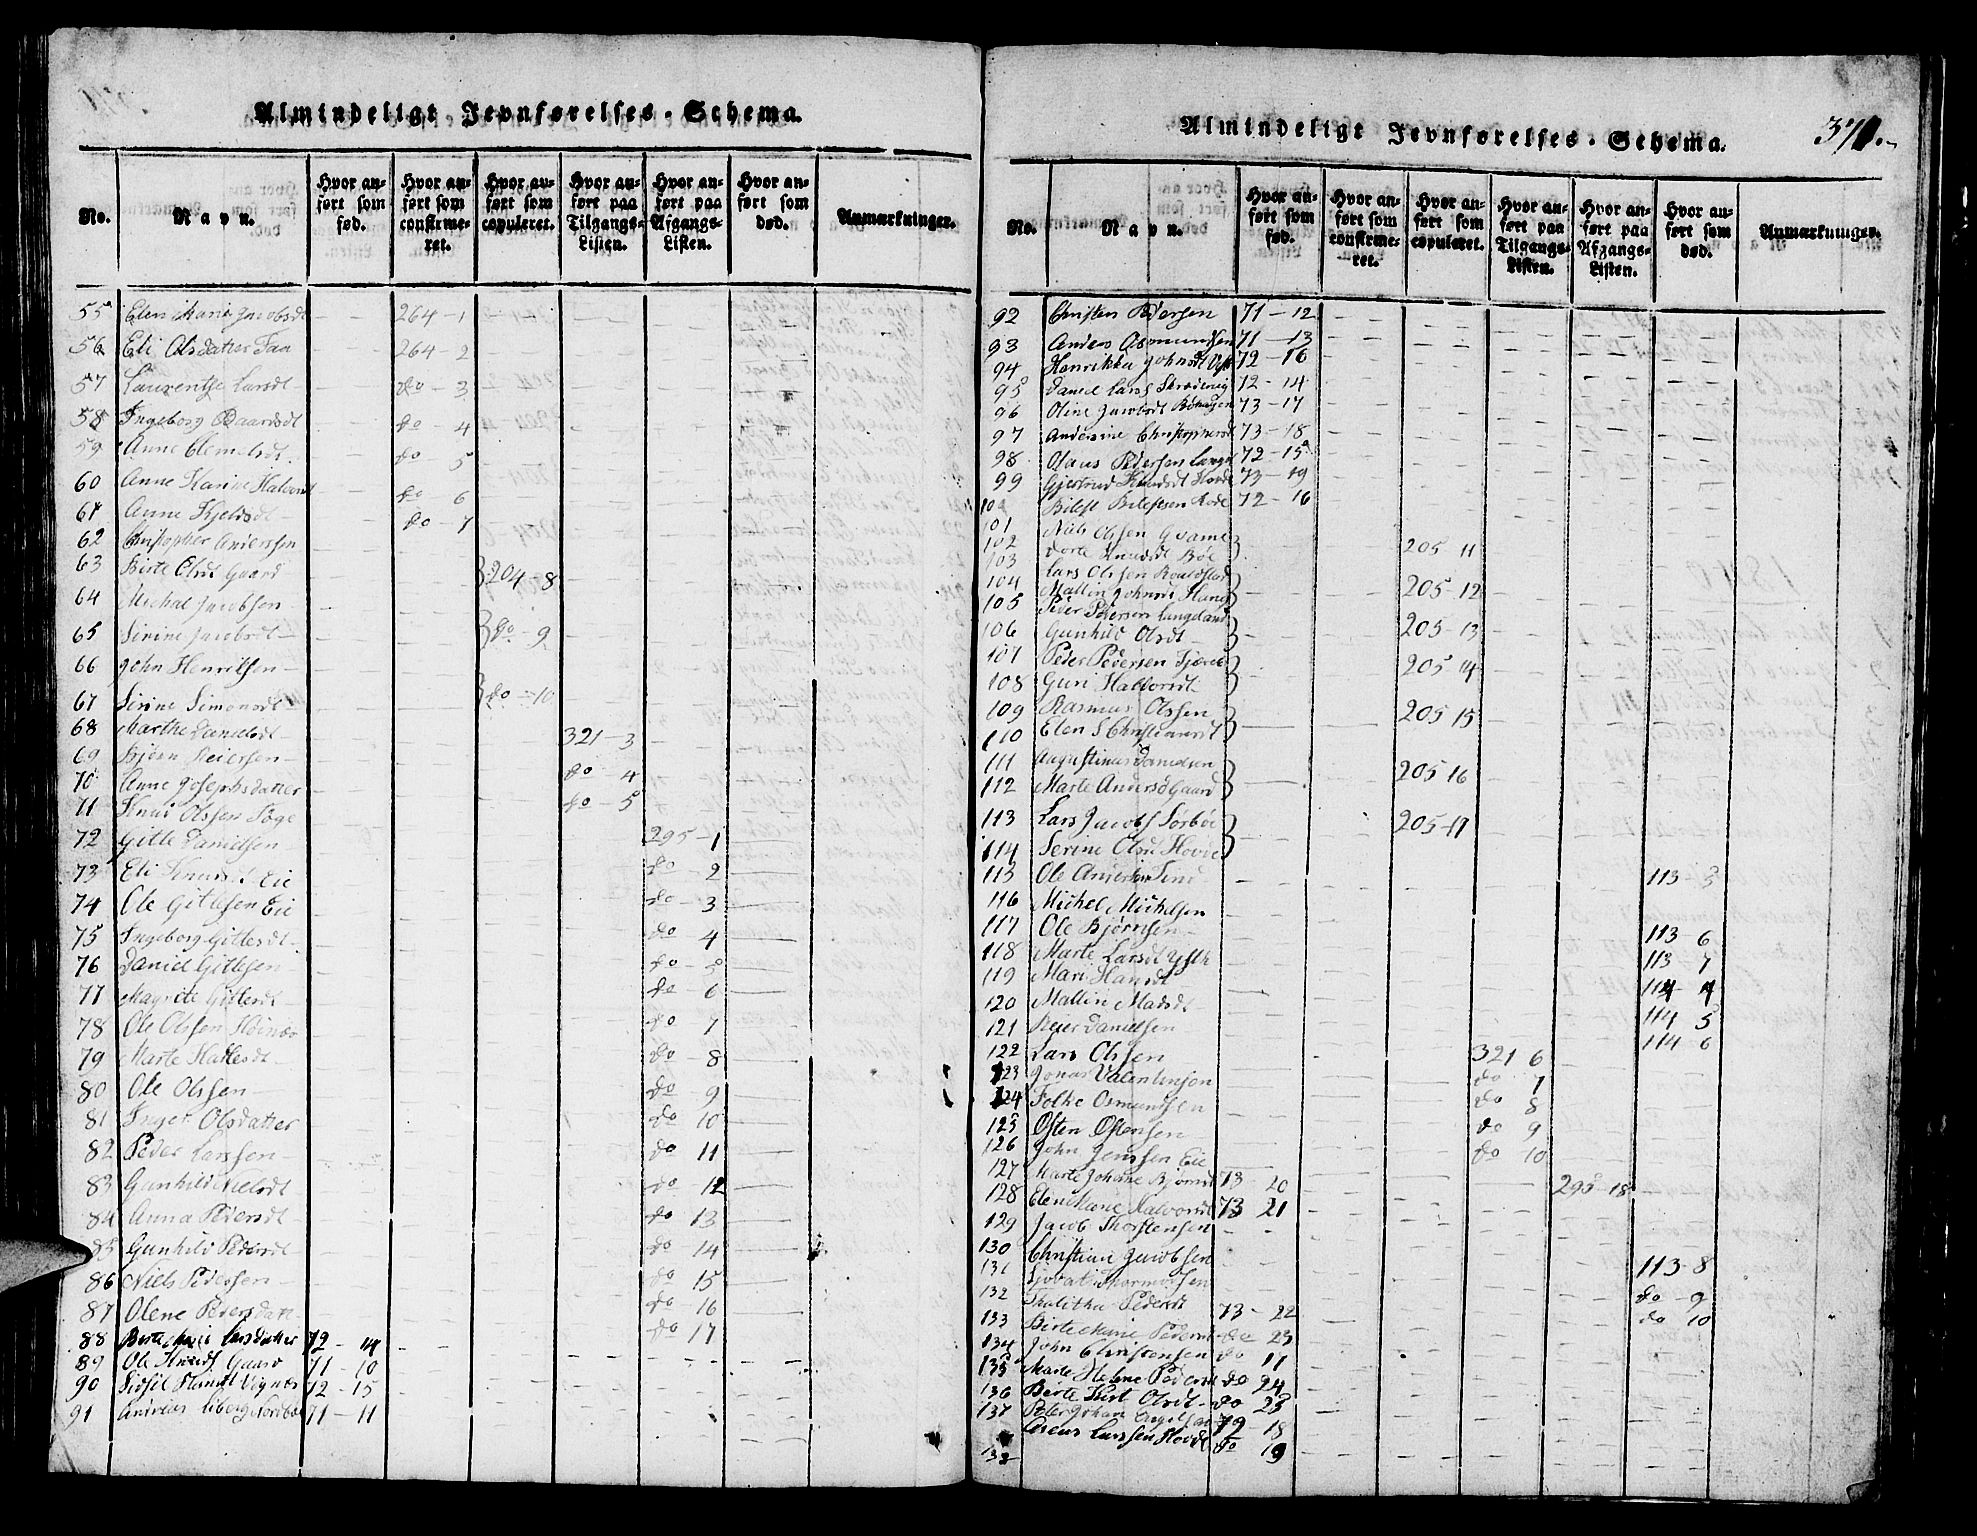 Almindeligt Jevnførelses-Schema.
No. Navn. Hvor anført som fød. Hvor anført som confirmeret. Hvor anført som copuleret. Hvor anført paa Tilgangs-Listen. Hvor anført paa Afgangs-Listen. Hvor anført som død. Anmærkninger.
55 Elen Marie Jacobsdt 264-1
56 Eli Olsdatter Faa 264-2
57 Laurentse Larsdt do 3
58 Ingeborg Baardsdt do 4
59 Anne Clemetsdt do 5
60 Anne Karine Halvorsdt do 6
61 Anne Kjeldsdt do 7
62 Christopher Andersen
63 Birte Olsdt Gaard 204-8
64 Michal Jacobsen
65 Serine Jacobsdt do 9
66 John Henriksen
67 Serine Simonsdt do 10
68 Marthe Danielsdt 321-3
69 Bjørn Reiersen do 4
70 Anne Josephsdatter do 5
71 Knud Olssen Søge
72 Gitle Danielsen 295-1
73 Eli Knudsdt Eie do 2
74 Ole Gitlesen Eie do 3
75 Ingeborg Gitlesdt do 4
76 Daniel Gitlesen do 5
77 Magrete Gitlesdt do 6
78 Ole Olssen do 7
79 Marte Hallesdt do 8
80 Ole Olssen do 9
81 Inger Olsdatter do 10
82 Peder Larssen do 11
83 Gunhild Nielsdt do 12
84 Anna Pedersdt do 13
85 Gunhild Pedersdt do 14
86 Niels Pedersen do 15
87 Olene Pedersdatt do 16
do 17
88 Birte Marie Larsdatter 72-14
89 Ole Knuds Gaard 71-10
90 Sidsel 72-15
91 Andreas 71-11
Almindeligt Jevnførelses-Schema. 371.
No. Navn. Hvor anført som fød. Hvor anført som confirmeret. Hvor anført som copuleret. Hvor anført paa Tilgangs-Listen. Hvor anført paa Afgangs-Listen. Hvor anført som død. Anmærkninger.
92 Christen Pedersen 71-12
93 Anders Osmundsen 71-13
94 Henrikka Johnsdt 72-16
95 Daniel Lars 72-14
96 Oline Jacobsdt 73-17
97 Andersine Christophersdt 73-18
98 Olaus Pedersen 72-15
99 Gjertrud Knudsdt Hovde 73-19
100 72-16
101 Niels Olssen Qvame
102 Dorte Knudsdt Bøe 205 11
103 Lars Olssen
104 Mallin Johnsdt 205-12
105 Peder Petersen Langeland
106 Gunhild Olsdt 205-13
107 Peder Pedersen
108 Guri Halvorsdt 205 14
109 Rasmus Olssen
110 Elen S Christiansdt 205 15
111 Augustinus Danielsen
112 Marte Anders Gaard 205 16
113 Lars Jacobs Sørbøe
114 Serine Olsdt Hovde 205-17
115 Ole Andersen 113-5
116 Michel Michelsen
117 Ole Bjørnsen 113 6
118 Marte Larsdt 113 7
119 Mari Hansdt 114 4
120 Mallin Madsdt 114 5
121 Reier Danielsen 114 6
122 Lars Olssen 321 6
123 Jonas Valentinsen do 7
124 Folke Osmundsen do 8
125 Østen Østensen do 9
126 John Jenssen Eie do 10
127 Marte Johane Bjørnsdt 73-20 295-18
128 Elen Marie Halvorsdt 73 21
129 Jacob Thorstensen
130 Christian Jacobsen 113-8
131 Thormodsen do 9
132 Thalitha Pedersdt 73-22 do 10
133 Birte Marie Pedersdt do 23
134 John Christensen do 17
135 Marte Helene Pedersdt do 24
136 Birte Olsdt do 25
137 Peter Johan 79 18
138 Larssen Hovde do 19